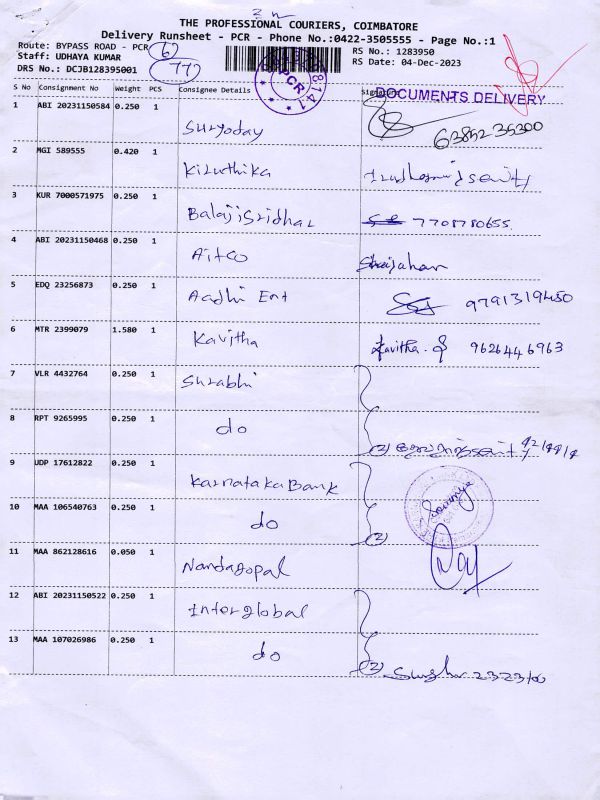 THE PROFESSIONAL COURIERS, COIMBATORE
Delivery Runsheet - PCR - Phone No.:0422-3505555 - Page No.:1
Route: BYPASS ROAD - PCR 6
RS No.: 1283950
Staff: UDHAYA KUMAR
RS Date: 04-Dec-2023
DRS No.: DCJB128395001 77
PCR 8141
S No Consignment No Weight PCS Consignee Details
DOCUMENTS DELIVERY
1 ABI 20231150584 0.250 1 Suryoday 6385235300
2 MGI 589555 0.420 1 Kiruthika
3 KUR 7000571975 0.250 1 Balaji Sridhar 7708780655
4 ABI 20231150468 0.250 1 Aitco Shajahan
5 EDQ 23256873 0.250 1 Aadhi Ent 9791319450
6 MTR 2399079 1.580 1 Kavitha Kavitha. 9626446963
7 VLR 4432764 0.250 1 Surabhi
8 RPT 9265995 0.250 1 do (2)
9 UDP 17612822 0.250 1 Karnataka Bank
10 MAA 106540763 0.250 1 do (2)
11 MAA 862128616 0.050 1 Nandagopal
12 ABI 20231150522 0.250 1 Interglobal
13 MAA 107026986 0.250 1 do (2)